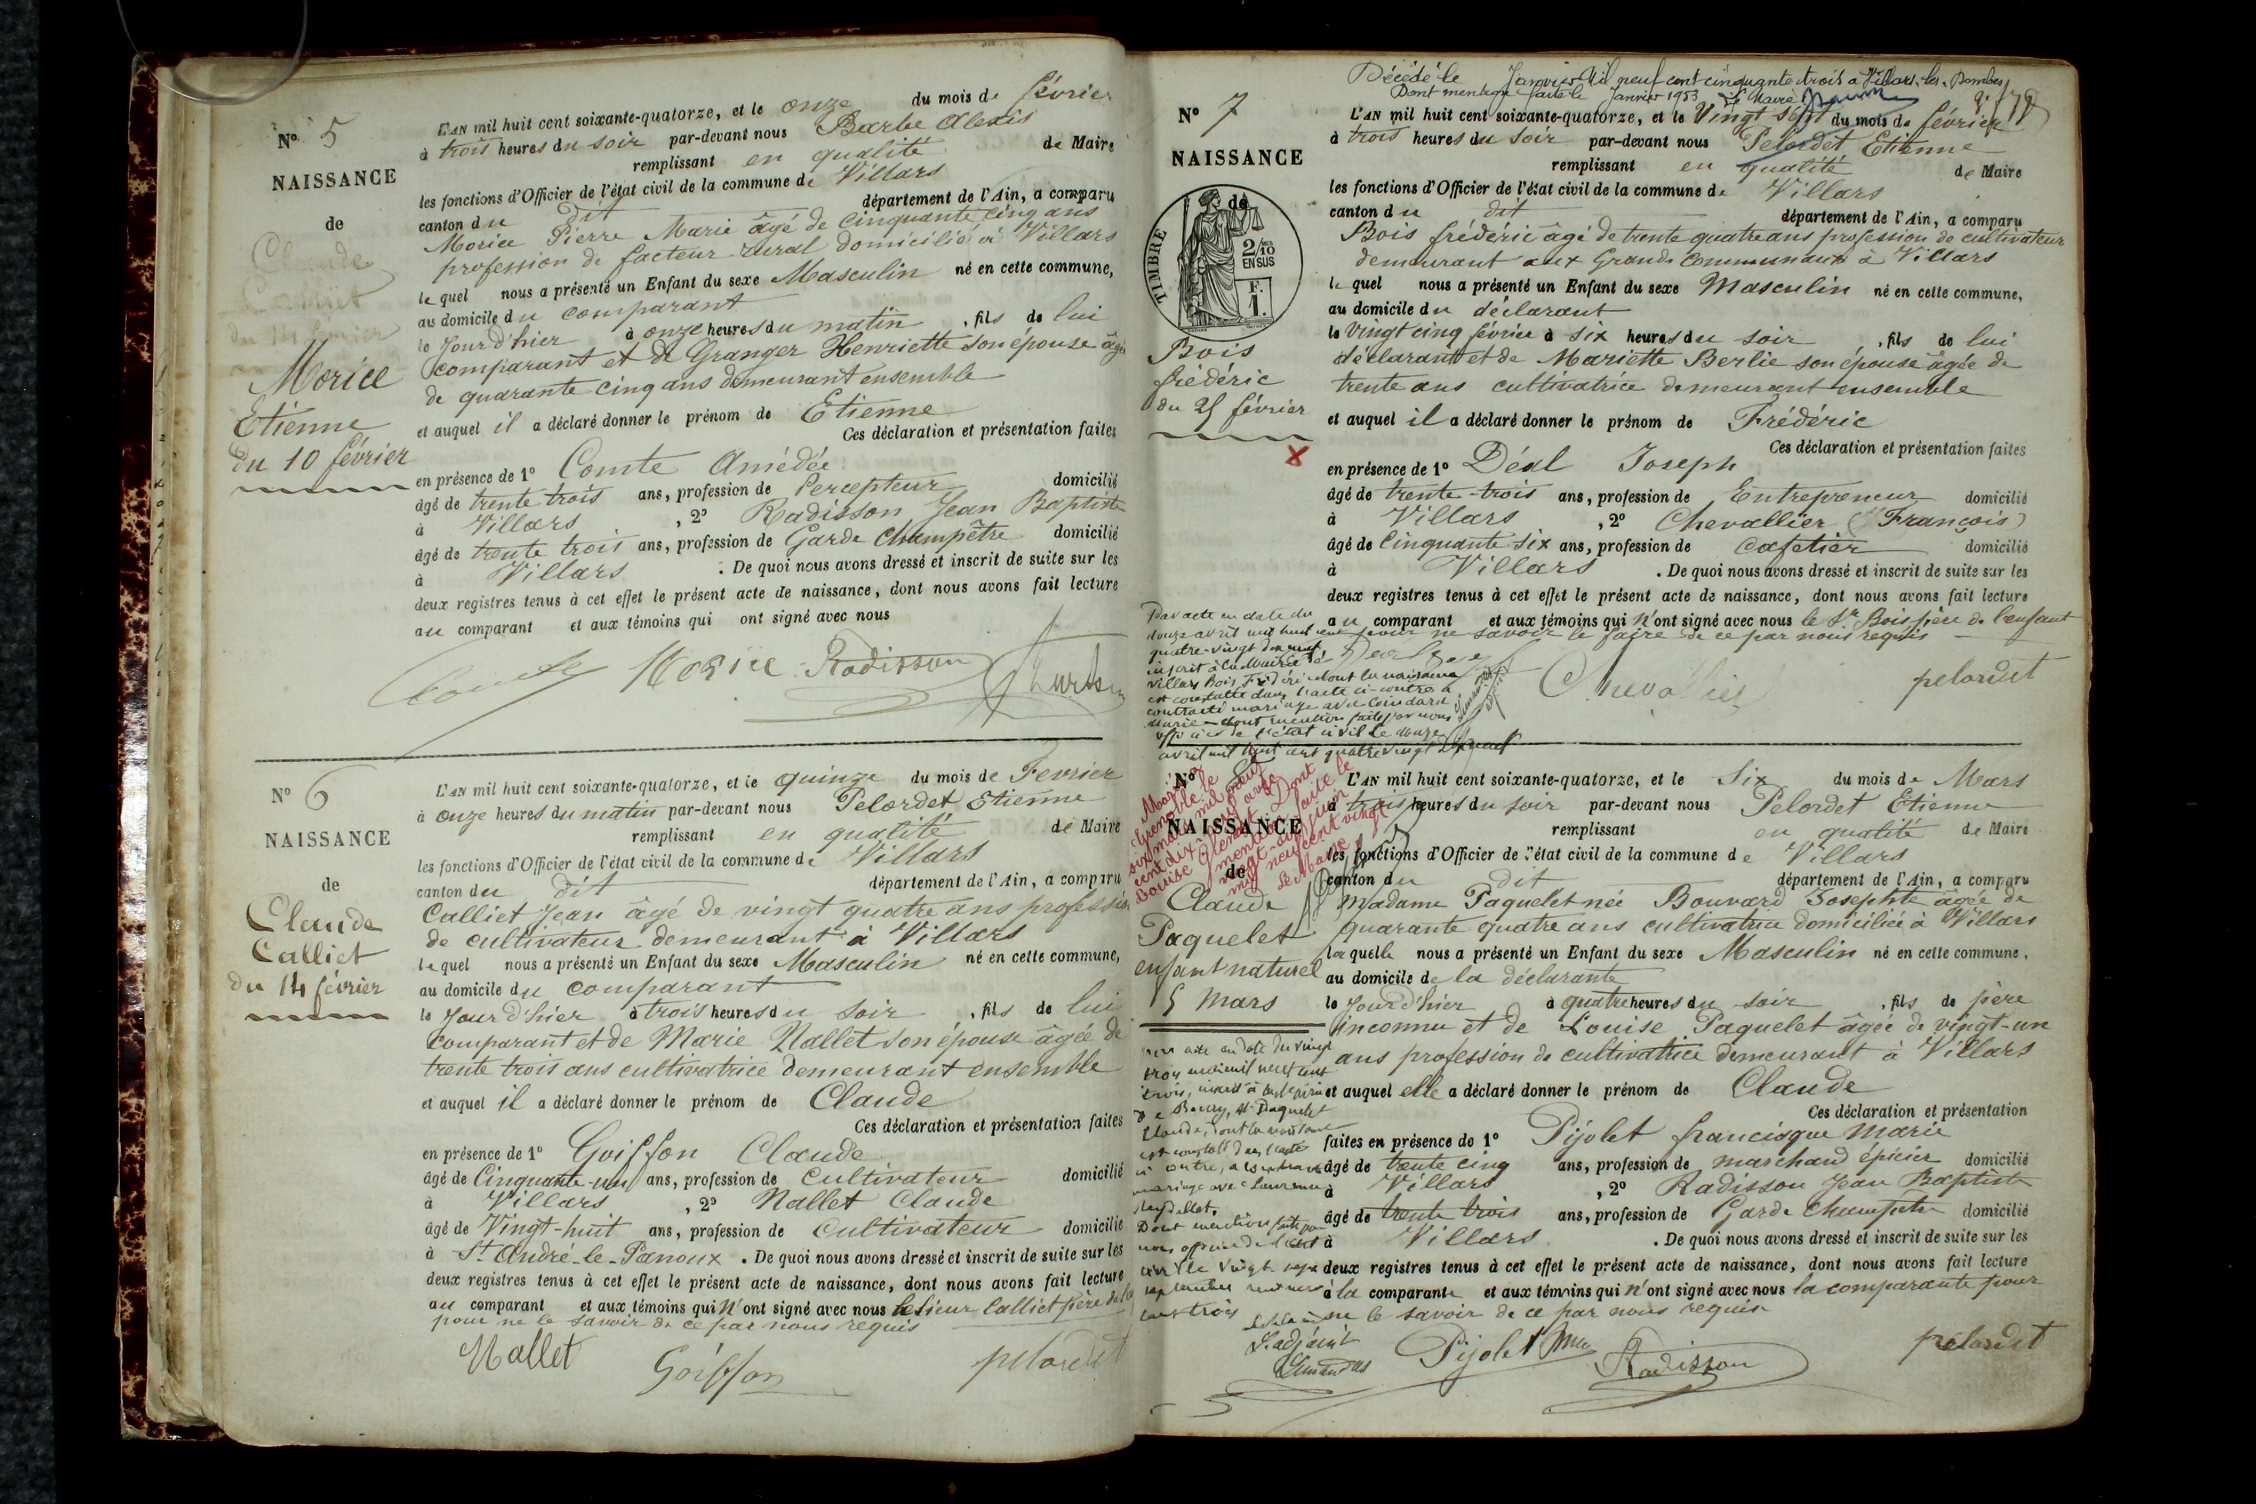 No 5
NAISSANCE
de
Morice
Etienne
du 10 février
L'AN mil huit cent soixante-quatorze, et le onze du mois de février
à trois heures du soir par-devant nous Barbe Alexis
remplissant en qualité de Maire
les fonctions d'Officier de l'état civil de la commune de Villars
canton du dit département de l'Ain, a comparu
Morice Pierre Marie âgé de cinquante cinq ans
profession de facteur rural domicilié à Villars
lequel nous a présenté un Enfant du sexe Masculin né en cette commune,
au domicile du comparant
le jour d'hier à onze heures du matin, fils de lui
comparant et de Granger Henriette son épouse âgée
de quarante cinq ans demeurant ensemble
et auquel il a déclaré donner le prénom de Etienne
Ces déclaration et présentation faites
en présence de 1º Comte Amédée
âgé de trente trois ans, profession de Percepteur domicilié
à Villars, 2º Radisson Jean Baptiste
âgé de trente trois ans, profession de Garde Champêtre domicilié
à Villars. De quoi nous avons dressé et inscrit de suite sur les
deux registres tenus à cet effet le présent acte de naissance, dont nous avons fait lecture
au comparant et aux témoins qui ont signé avec nous
Comte Morice Radisson
No 6
NAISSANCE
de
Claude
Calliet
du 14 février
L'AN mil huit cent soixante-quatorze, et le quinze du mois de Fevrier
à onze heures du matin par-devant nous Pelordet Etienne
remplissant en qualité de Maire
les fonctions d'Officier de l'état civil de la commune de Villars
canton du dit département de l'Ain, a comparu
Calliet Jean âgé de vingt quatre ans profession
de cultivateur demeurant à Villars
lequel nous a présenté un Enfant du sexe Masculin né en cette commune,
au domicile du comparant
le jour d'hier à trois heures du soir, fils de lui
comparant et de Marie Nallet son épouse âgée de
trente trois ans cultivatrice demeurant ensemble
et auquel il a déclaré donner le prénom de Claude
Ces déclaration et présentation faites
en présence de 1º Goiffon Claude
âgé de Cinquante-un ans, profession de Cultivateur domicilié
à Villars, 2º Nallet Claude
âgé de Vingt-huit ans, profession de Cultivateur domicilié
à St André-le-Panoux. De quoi nous avons dressé et inscrit de suite sur les
deux registres tenus à cet effet le présent acte de naissance, dont nous avons fait lecture
au comparant et aux témoins qui n'ont signé avec nous le sieur Calliet père
pour ne le savoir de ce par nous requis
Nallet Goiffon pelordet
Décédé le Janvier Mil neuf cent cinquante trois à Villars-les-Dombes
Dont mention faite le Janvier 1953 Le Maire
No 7
NAISSANCE
de
TIMBRE
2/10
EN SUS
F.
1.
Bois
frédéric
du 25 février
X
L'AN mil huit cent soixante-quatorze, et le Vingt sept du mois de février
à trois heures du soir par-devant nous Pelordet Etienne
remplissant en qualité de Maire
les fonctions d'Officier de l'état civil de la commune de Villars
canton du dit département de l'Ain, a comparu
Bois frédéric âgé de trente quatre ans profession de cultivateur
demeurant aux Grands Communaux à Villars
lequel nous a présenté un Enfant du sexe Masculin né en cette commune,
au domicile du déclarant
le Vingt cinq février à six heures du soir, fils de lui
déclarant et de Mariette Berlie son épouse âgée de
trente ans cultivatrice demeurant ensemble
et auquel il a déclaré donner le prénom de Frédéric
Ces déclaration et présentation faites
en présence de 1º Déal Joseph
âgé de trente-trois ans, profession de Entrepreneur domicilié
à Villars, 2º Chevallier (François)
âgé de Cinquante six ans, profession de cafetier domicilié
à Villars. De quoi nous avons dressé et inscrit de suite sur les
deux registres tenus à cet effet le présent acte de naissance, dont nous avons fait lecture
au comparant et aux témoins qui n'ont signé avec nous le Sr Bois père de l'enfant
pour ne savoir le faire de ce par nous requis
Chevallier pelordet
Par acte en date du
douze avril mil huit cent
quatre-vingt dix neuf
inscrit à la Mairie de
Villars Bois Frédéric dont la naissance
est constatée dans l'acte ci-contre a
contracté mariage avec
Marie dont mention faite par nous
officier de l'état civil le douze
avril mil huit cent quatre vingt dix neuf
No 8
NAISSANCE
de
Claude
Paquelet
enfant naturel
5 Mars
Marié à
Grenoble le
six mars mil neuf
cent dix neuf avec
Louise Dont
mention faite le
vingt-six juin
mil neuf cent vingt
Le Maire
L'AN mil huit cent soixante-quatorze, et le Six du mois de Mars
à trois heures du soir par-devant nous Pelordet Etienne
remplissant en qualité de Maire
les fonctions d'Officier de l'état civil de la commune de Villars
canton du dit département de l'Ain, a comparu
Madame Paquelet née Bouvard Josephte âgée de
quarante quatre ans cultivatrice domiciliée à Villars
laquelle nous a présenté un Enfant du sexe Masculin né en cette commune,
au domicile de la déclarante
le jour d'hier à quatre heures du soir, fils de père
inconnu et de Louise Paquelet âgée de vingt-un
ans profession de cultivatrice demeurant à Villars
et auquel elle a déclaré donner le prénom de Claude
Ces déclaration et présentation
faites en présence de 1º Pijolet francisque Marie
âgé de trente cinq ans, profession de marchand épicier domicilié
à Villars, 2º Radisson Jean Baptiste
âgé de trente trois ans, profession de Garde Champetre domicilié
à Villars. De quoi nous avons dressé et inscrit de suite sur les
deux registres tenus à cet effet le présent acte de naissance, dont nous avons fait lecture
à la comparante et aux témoins qui n'ont signé avec nous la comparante pour
ne le savoir de ce par nous requis
acte en date du vingt
trois mil neuf cent
trois, inscrit à la mairie
de Bourg, Mr Paquelet
Claude, dont la naissance
est constatée dans l'acte
ci contre, a contracté
mariage avec Laurence
Dont mention faite par
nous officier de l'état
civil le vingt sept
septembre mil neuf
cent trois
L'adjoint
Pijolet Radisson pelordet